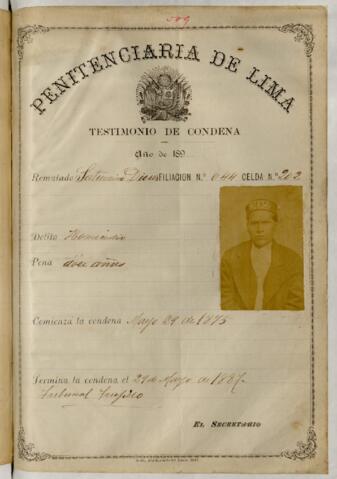 589
PENITENCIARIA DE LIMA
TESTIMONIO DE CONDENA
Año de 189
Rematado Saturnino FILIACION N.º 644 CELDA N.º 202
Delito Homicidio
Pena doce años
Comienza la condena Mayo 29 de 1875
Termina la condena el 29 de Mayo de 1887
Tribunal
EL SECRETARIO